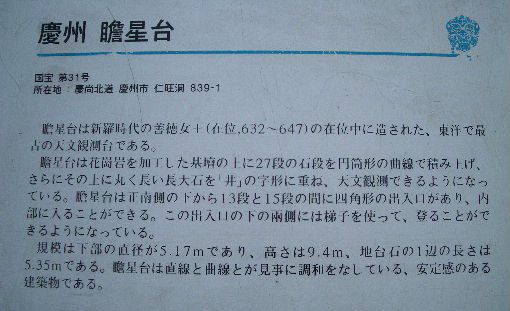 慶州 瞻星台
国宝 第31号
所在地 : 慶尚北道 慶州市 仁旺洞 839-1
瞻星台は新羅時代の善徳女+(在位,632〜647)の在位中に造された、東洋で最
古の天文観測台である。
瞻星台は花崗岩を加工した基壇の上に27段の石段を円筒形の曲線で積み上げ、
さらにその上に丸く長い長大石を「井」の字形に重ね、天文観測できるようになっ
ている。瞻星台は正南側の下から13段と15段の間に四角形の出入口があり、内
部に入ることができる。この出入口の下の両側には梯子を使って、登ることがで
きるようになっている。
規模は下部の直径が5.17mであり、高さは9.4m、地台石の1辺の長さは
5.35mである。瞻星台は直線と曲線とが見事に調和をなしている、安定感のある
建築物である。